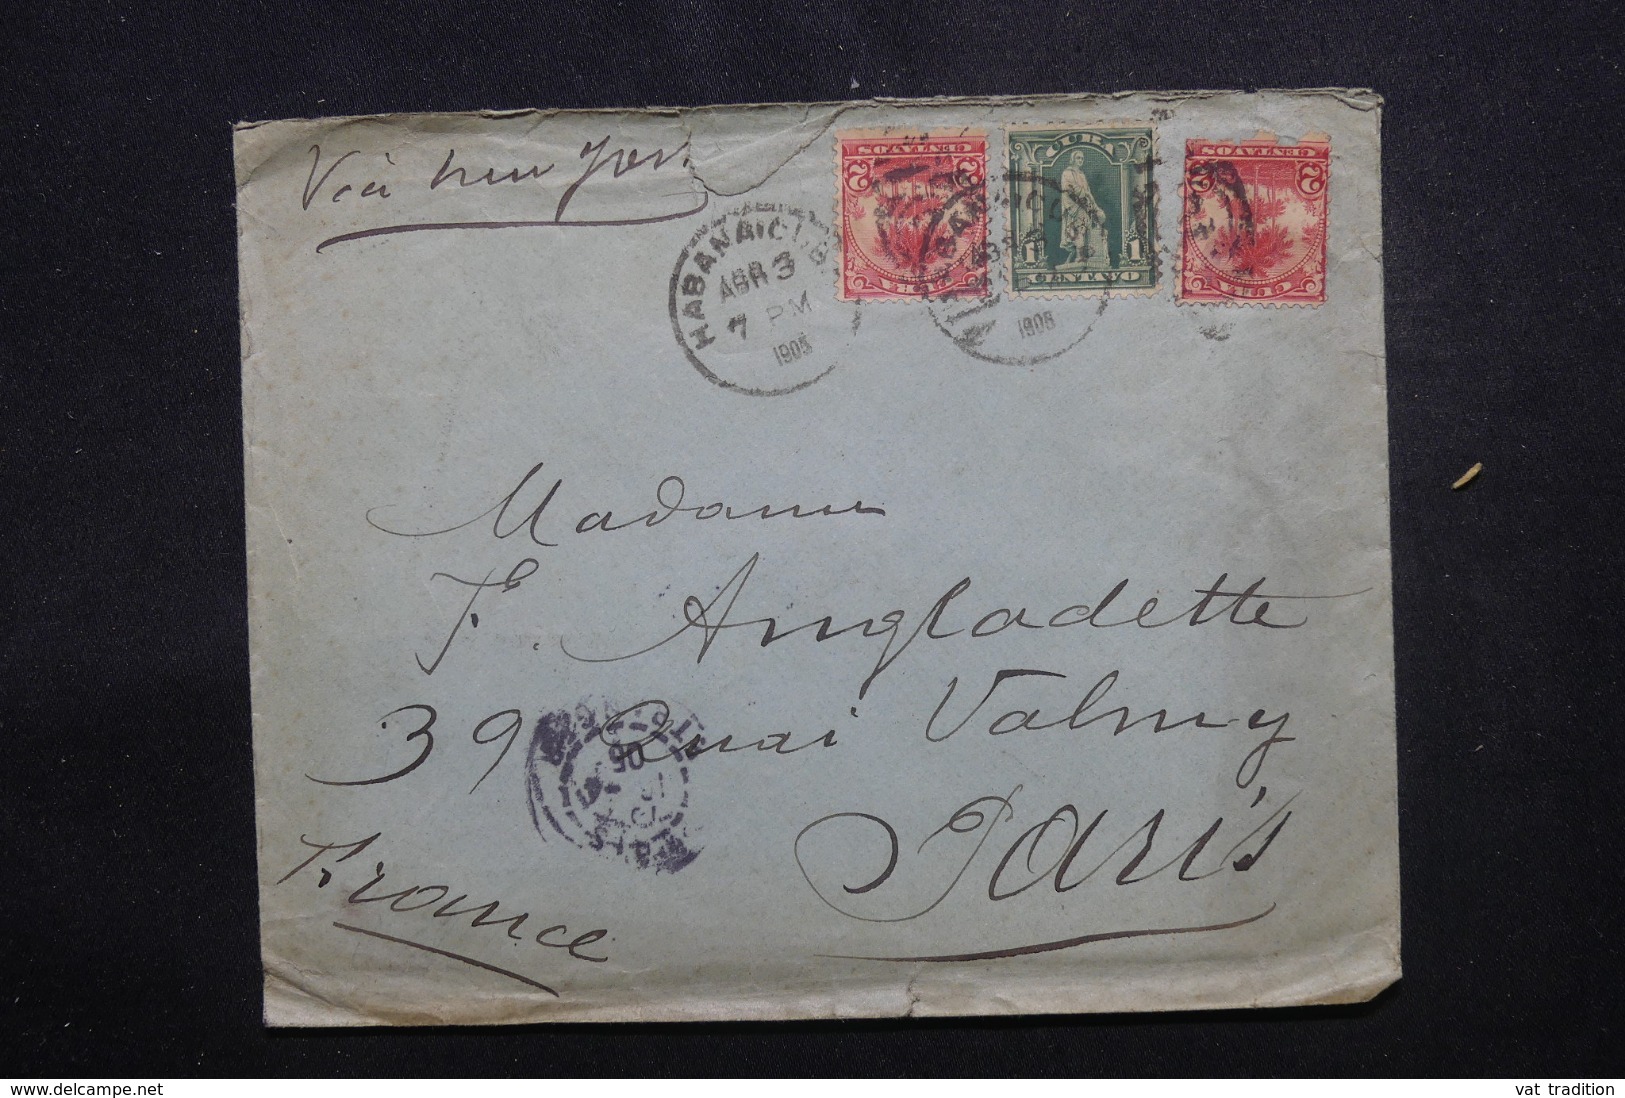 Via new york
2 CENTAVOS 2
CUBA
CUBA
1 CENTAVO 1
2 CENTAVOS 2
CUBA
HABANA
ABR 3
7 PM
1905
1905
Madame
F. Angladette
39 Quai Valmy
Paris
France
PARIS
05
delcampe.net
vat tradition